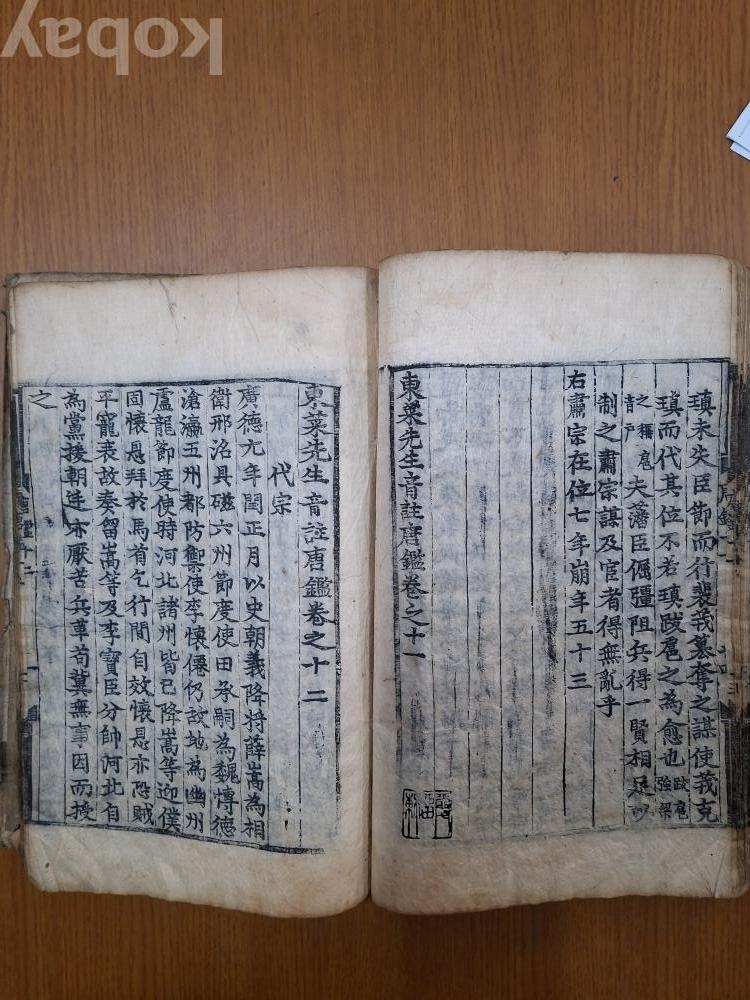 kobay
瑱未失臣節而行裴茙纂奪之謀使茙克
瑱而代其位不若瑱跋扈之為愈也跋扈強梁
之稱扈音戸夫藩臣倔彊阻兵得一賢相足以
制之肅宗謀及宦者得無亂乎
右肅宗在位七年崩年五十三
東萊先生音註唐鑑卷之十一
東萊先生音註唐鑑卷之十二
代宗
廣德元年閏正月以史朝義降將薛嵩為相
衛邢洺貝磁六州節度使田承嗣為魏愽德
滄瀛五州都防禦使李懷僊仍故地為幽州
盧龍節度使時河北諸州皆已降嵩等迎僕
固懷恩拜於馬首乞行間自效懷恩亦恐賊
平寵衰故奏留嵩等及李寶臣分帥河北自
為黨援朝廷亦厭苦兵革苟冀無事因而授
之